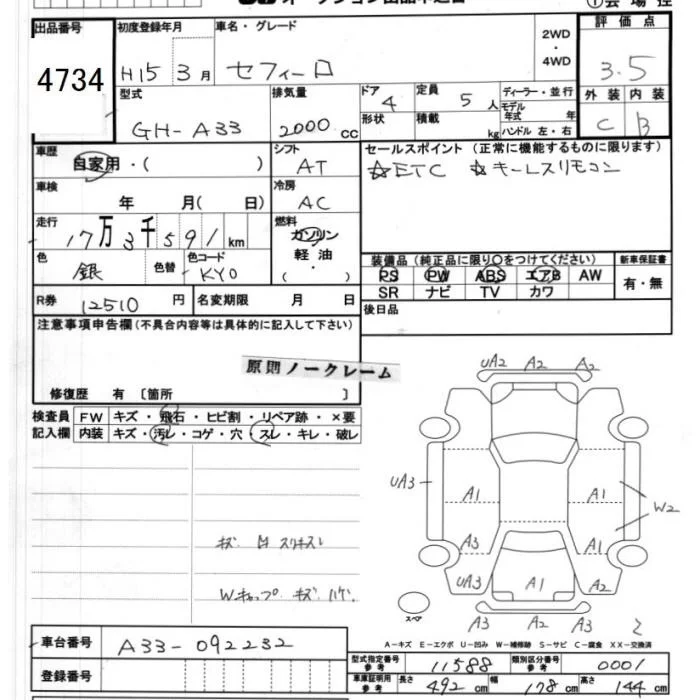 オークション出品申込書
出品番号 4734
初度登録年月 H15 3月
車名・グレード セフィーロ
2WD ・ 4WD
評価点 3.5
外装 C 内装 B
型式 GH-A33
排気量 2000 cc
ドア 4
形状
定員 5人
積載 kg
ディーラー・並行
モデル年式 年
ハンドル 左・右
車歴 自家用・( )
シフト AT
セールスポイント (正常に機能するものに限ります)
☆ETC ☆キーレスリモコン
車検 年 月( 日)
冷房 AC
走行 17万3千591km
燃料 ガソリン 軽油 ( ・ )
色 銀 色替 色コード KY0
装備品 (純正品に限り○をつけてください)
PS PW ABS エアB AW
SR ナビ TV カワ
新車保証書 有・無
R券 12510円 名変期限 月 日
後日品
注意事項申告欄(不具合内容等は具体的に記入して下さい)
原則ノークレーム
修復歴 有 〔箇所 〕
検査員記入欄
FW キズ・飛石・ヒビ割・リペア跡・×要
内装 キズ・汚レ・コゲ・穴・スレ・キレ・破レ
キズ スリキズ
Wキャップ キズ ハゲ
UA2 A2 A2
UA3 A1 A1 W2
A3 A1 A2
UA3 A1 A2
スペア
A3 A2 A3
A-キズ E-エクボ U-凹み W-補修跡 S-サビ C-腐食 XX-交換済
車台番号 A33-092232
登録番号
型式指定番号 参考 11588 類別区分番号 参考 0001
車庫証明用 参考 長さ 492cm 幅 178cm 高さ 144cm